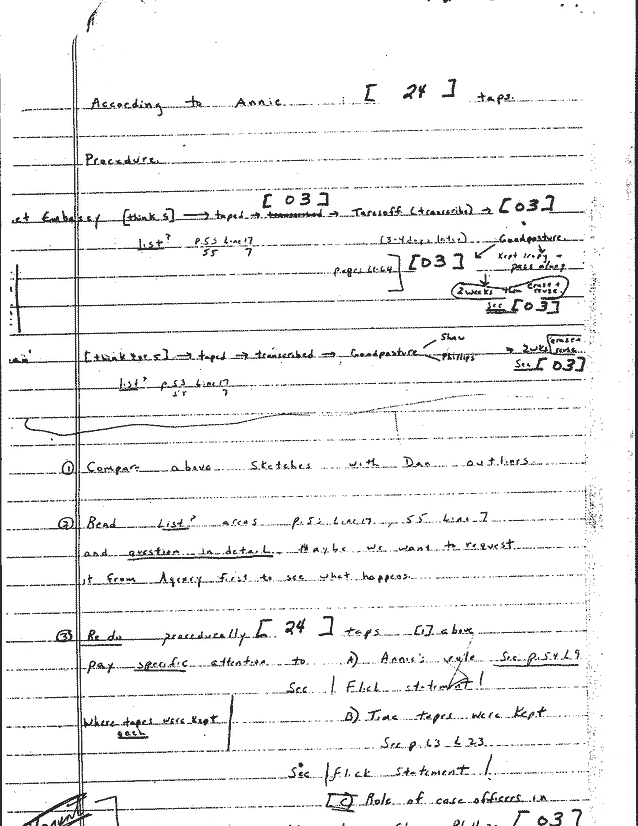 According to Annie [ 24 ] taps.
Procedure.
[ 03 ]
et Embassy [think 5] → taped → transcribed → Tarasoff (transcribe) → [ 03 ]
List? p.53 Line 17 (3-4 days later) Goodposture.
55 7
Kept 1 copy +
pages 61-64 [ 03 ] pass along
2 weeks then erase + reuse.
See [ 03 ]
Shaw
[think 4 or 5] → taped → transcribed → Goodposture → 2 wks erase + reuse.
Phillips
See [ 03 ]
List? p.53 Line 17
55 7
① Compare above sketches with Dan outlines.
② Read List? areas p.53 Line 17, 55 Line 7
and question in detail. Maybe we want to request
it from Agency first to see what happens.
③ Re do procedurally [ 24 ] taps [1] above
pay specific attention to A) Annie's role See p.54 L9
See | Flick statement |
Where tapes were kept
each
B) Time tapes were kept
See p 63 L 23
See | Flick Statement |
[C) Role of case officers in
[ 03 ]